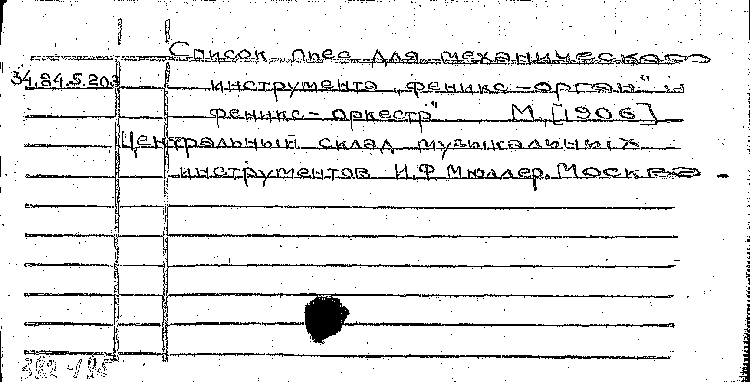 Список пьес для механического
34.84.5.203 инструмента „феникс-орган" и
феникс-оркестр" М., [1906]
Центральный склад музыкальных
инструментов И.Ф. Мюллер. Москва.